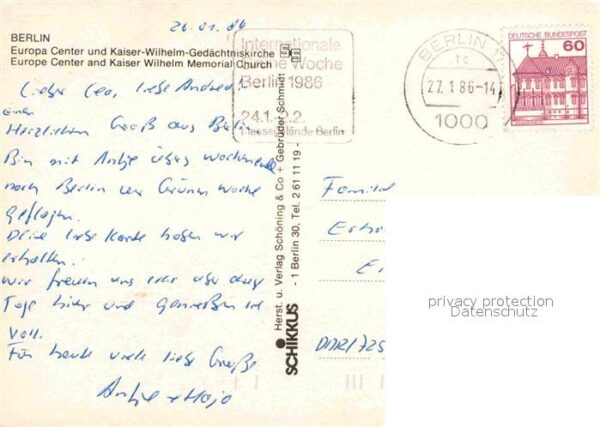 26.01.86
BERLIN
Europa Center und Kaiser-Wilhelm-Gedächtniskirche
Europe Center and Kaiser Wilhelm Memorial Church
Internationale
Grüne Woche
Berlin 1986
24.1.-2.2.
Messegelände Berlin
BERLIN 11
tc
27.1.86-14
1000
DEUTSCHE BUNDESPOST
60
Lieber Leo, liebe Andrea!
Einen
Herzlichen Gruß aus Berlin
Bin mit Antje übers Wochenende
nach Berlin zur Grünen Woche
geflogen.
Deine liebe Karte haben wir
erhalten.
Wir freuen uns über diese
Tage hier und genießen sie
voll.
Für heute viele liebe Grüße
Antje + Hajo
SCHIKKUS
Herst. u. Verlag Schöning & Co + Gebrüder Schmidt
- 1 Berlin 30, Tel. 2 61 11 19 -
Familie
privacy protection
Datenschutz